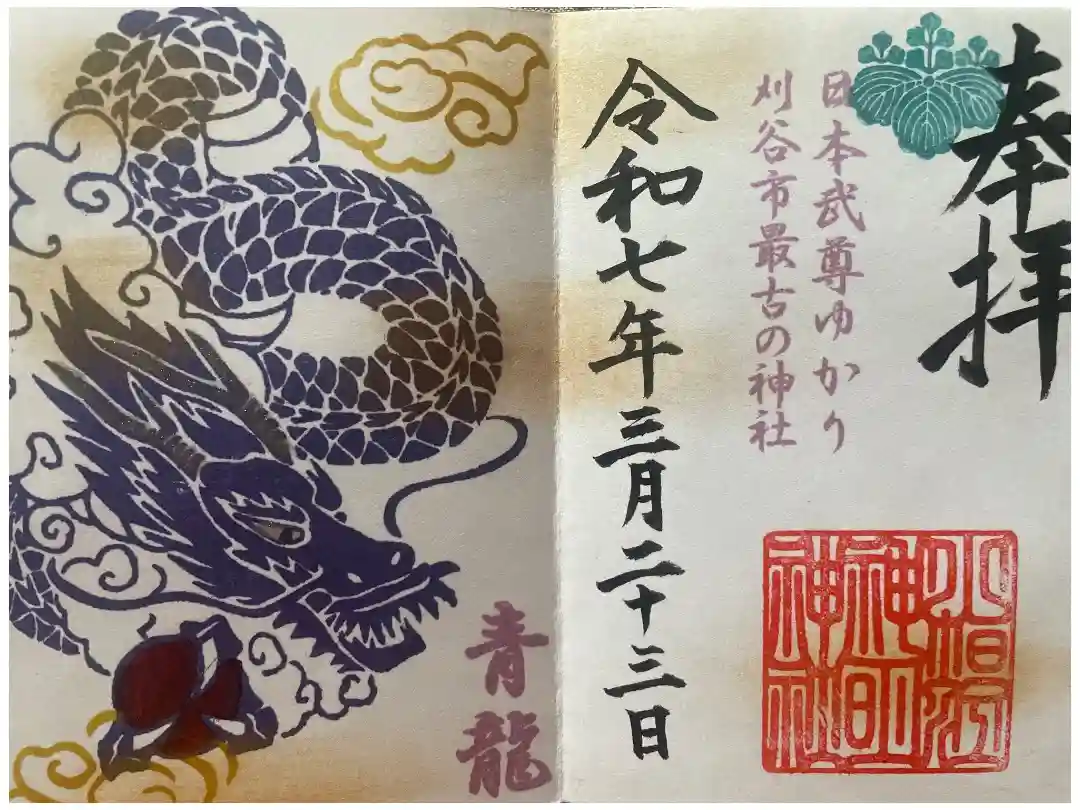 奉拝
日本武尊ゆかり
刈谷市最古の神社
小垣江
神明
神社
令和七年三月二十三日
青龍